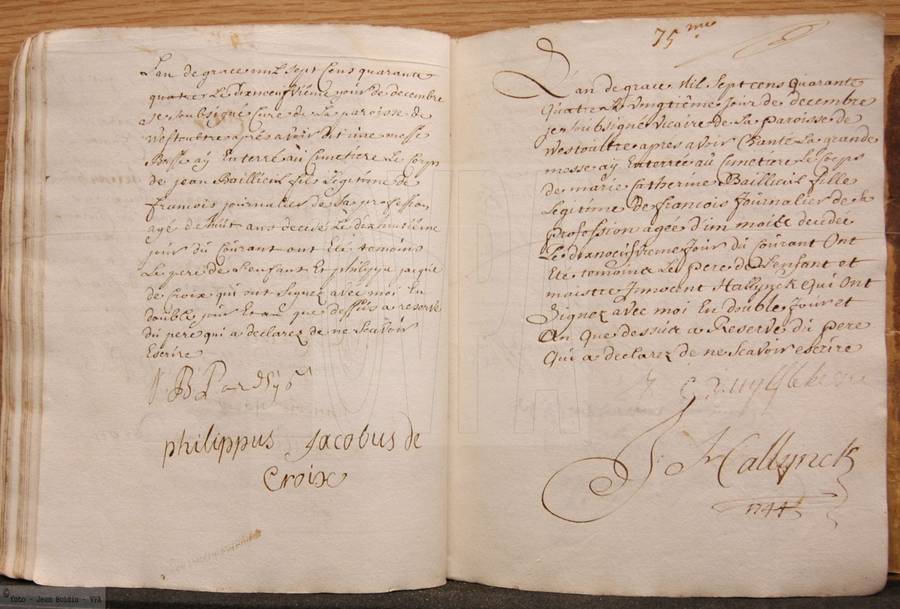 L'an de grace mil Sept Cens quarante
quatre Le dixneufvième jour de decembre
je soubsigné Curé de La paroisse de
Westoultre apres avoir dit une messe
Basse aÿ Enterré aú Cimetiere Le Corps
de jean Baillieúl fils Légitime de
francois journalier de sa profession
agé de húit ans décédé Le dixhuitième
jour dú Courant ont été temoins
Le pere de L'enfant Et philippe jacque
de Croix qui ont Signez avec moi En
double jour Et an que dessus a reserve
du pere qui a declarez de ne scavoir
Escrire
philippus Jacobus de
Croix
75me
L'an de grace Mil Sept cens Quarante
Quatre Le Vingtième Jour de decembre
je soubsigné Vicaire De La paroisse de
Westoultre apres avoir Chanté La grande
messe aÿ Enterrée aú Cimetiere Le Corps
de marie Catherine Baillieúl fille
Legitime De francois Journalier de sa
Profession agée d'un mois decedée
Le dixnoeufvieme Jour du Courant Ont
Eté temoins Le Pere de L'enfant et
maistre Innocent Hallynck Qui Ont
Signez avec moi En double Jour et
An Que dessus a Reserve du Pere
Qui a declarez de ne Scavoir escrire
J. Hallynck
1744
© foto - Jean Boldin - VVA